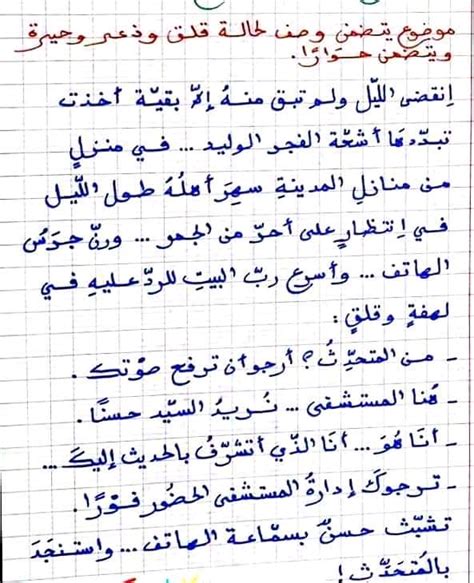 موضوع يتضمن وصف لحالة قلق وذعر وحيرة
ويتضمن حوارًا.
اِنقضى اللّيل ولم تبق منهُ إلاّ بقيّة أخذت
تبدّدهَا أشعّة الفجر الوليد ... في منزلٍ
من منازلِ المدينةِ سهِرَ أهلُهُ طول اللّيل
في اِنتظارٍ على أحرّ من الجمر ... ورنّ جرَسُ
الهاتف ... وأسرع ربّ البيتِ للردّ عليهِ في
لهفةٍ وقلقٍ :
- من المتحدِّثُ ؟ أرجو أن ترفع صوْتك .
- هُنا المستشفى ... نُريدُ السيّد حسنًا .
- أنا هُوَ ... أنا الذّي أتشرّفُ بالحديث إليكَ ...
- ترجوكَ إدارةُ المستشفى الحضُور فوْرًا .
تشبّث حسنٌ بسمّاعة الهاتف ... واستنجَدَ
بالمُتحَدِّث !